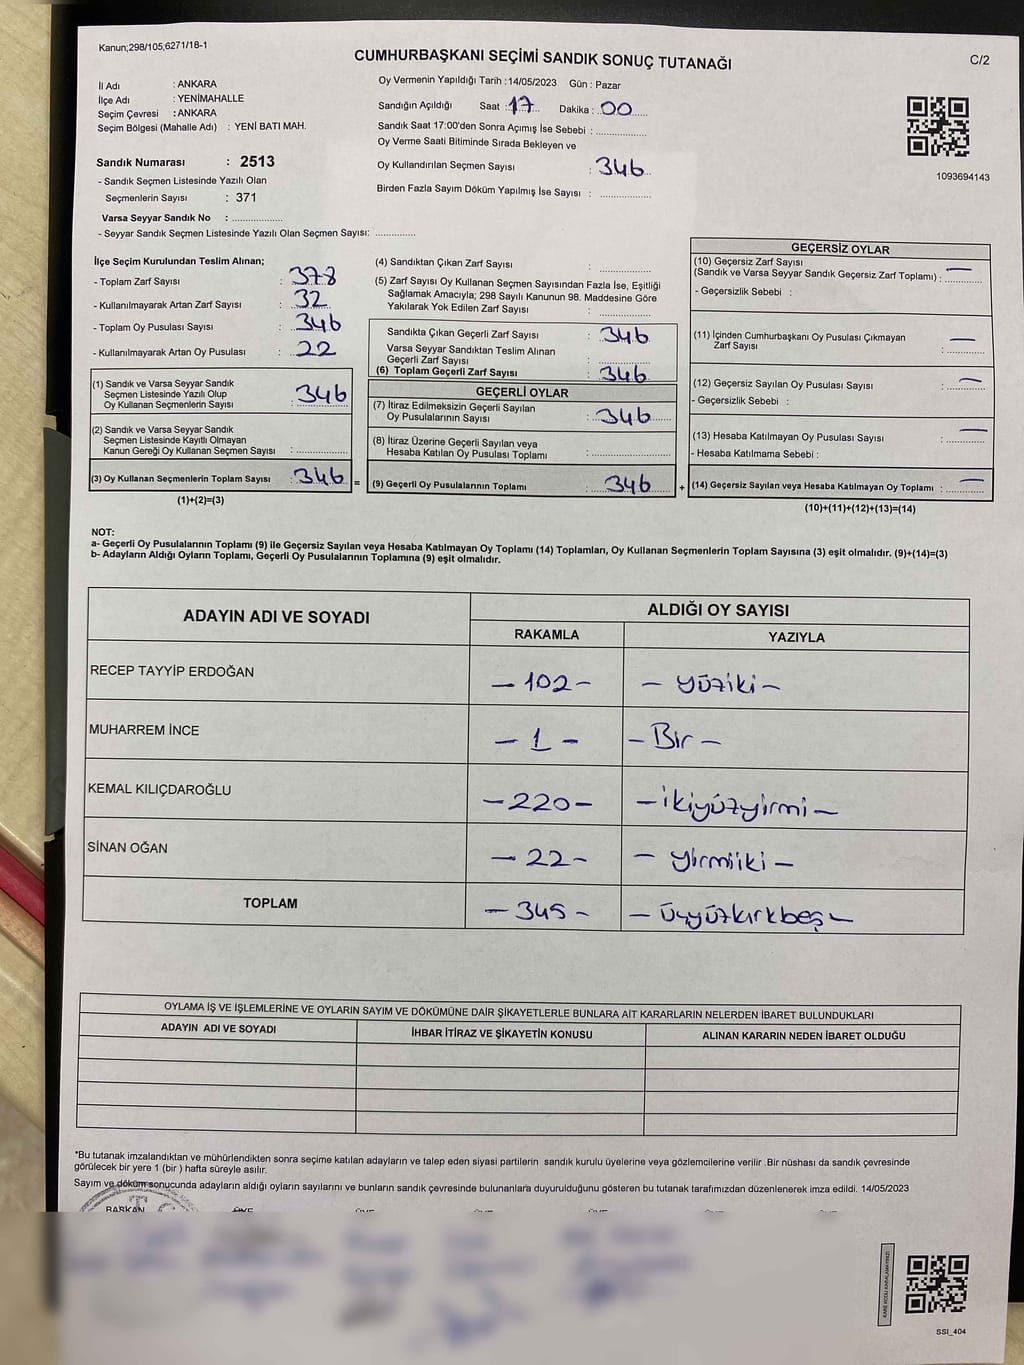 Kanun;298/105;6271/18-1
CUMHURBAŞKANI SEÇİMİ SANDIK SONUÇ TUTANAĞI
C/2
İl Adı : ANKARA
İlçe Adı : YENİMAHALLE
Seçim Çevresi : ANKARA
Seçim Bölgesi (Mahalle Adı) : YENİ BATI MAH.
Sandık Numarası : 2513
- Sandık Seçmen Listesinde Yazılı Olan
Seçmenlerin Sayısı : 371
Varsa Seyyar Sandık No : ..................
- Seyyar Sandık Seçmen Listesinde Yazılı Olan Seçmen Sayısı: ..............
Oy Vermenin Yapıldığı Tarih : 14/05/2023 Gün : Pazar
Sandığın Açıldığı Saat : 17 Dakika : 00
Sandık Saat 17:00'den Sonra Açımış İse Sebebi : ..................
Oy Verme Saati Bitiminde Sırada Bekleyen ve
Oy Kullandırılan Seçmen Sayısı : 346
Birden Fazla Sayım Döküm Yapılmış İse Sayısı : ..................
1093694143
İlçe Seçim Kurulundan Teslim Alınan;
- Toplam Zarf Sayısı : 378
- Kullanılmayarak Artan Zarf Sayısı : 32
- Toplam Oy Pusulası Sayısı : 346
- Kullanılmayarak Artan Oy Pusulası : 22
(1) Sandık ve Varsa Seyyar Sandık
Seçmen Listesinde Yazılı Olup
Oy Kullanan Seçmenlerin Sayısı : 346
(2) Sandık ve Varsa Seyyar Sandık
Seçmen Listesinde Kayıtlı Olmayan
Kanun Gereği Oy Kullanan Seçmen Sayısı : ..................
(3) Oy Kullanan Seçmenlerin Toplam Sayısı : 346 =
(1)+(2)=(3)
(4) Sandıktan Çıkan Zarf Sayısı : ..................
(5) Zarf Sayısı Oy Kullanan Seçmen Sayısından Fazla İse, Eşitliği
Sağlamak Amacıyla; 298 Sayılı Kanunun 98. Maddesine Göre
Yakılarak Yok Edilen Zarf Sayısı : ..................
Sandıkta Çıkan Geçerli Zarf Sayısı : 346
Varsa Seyyar Sandıktan Teslim Alınan
Geçerli Zarf Sayısı : ..................
(6) Toplam Geçerli Zarf Sayısı : 346
GEÇERLİ OYLAR
(7) İtiraz Edilmeksizin Geçerli Sayılan
Oy Pusulalarının Sayısı : 346
(8) İtiraz Üzerine Geçerli Sayılan veya
Hesaba Katılan Oy Pusulası Toplamı : ..................
(9) Geçerli Oy Pusulalarının Toplamı : 346 +
GEÇERSİZ OYLAR
(10) Geçersiz Zarf Sayısı
(Sandık ve Varsa Seyyar Sandık Geçersiz Zarf Toplamı) : —
- Geçersizlik Sebebi :
(11) İçinden Cumhurbaşkanı Oy Pusulası Çıkmayan
Zarf Sayısı : —
(12) Geçersiz Sayılan Oy Pusulası Sayısı : —
- Geçersizlik Sebebi :
(13) Hesaba Katılmayan Oy Pusulası Sayısı : —
- Hesaba Katılmama Sebebi :
(14) Geçersiz Sayılan veya Hesaba Katılmayan Oy Toplamı : —
(10)+(11)+(12)+(13)=(14)
NOT:
a- Geçerli Oy Pusulalarının Toplamı (9) ile Geçersiz Sayılan veya Hesaba Katılmayan Oy Toplamı (14) Toplamları, Oy Kullanan Seçmenlerin Toplam Sayısına (3) eşit olmalıdır. (9)+(14)=(3)
b- Adayların Aldığı Oyların Toplamı, Geçerli Oy Pusulalarının Toplamına (9) eşit olmalıdır.
ADAYIN ADI VE SOYADI
ALDIĞI OY SAYISI
RAKAMLA YAZIYLA
RECEP TAYYİP ERDOĞAN — 102 — — yüziki —
MUHARREM İNCE — 1 — — Bir —
KEMAL KILIÇDAROĞLU — 220 — — ikiyüzyirmi —
SİNAN OĞAN — 22 — — yirmiiki —
TOPLAM — 345 — — üçyüzkırkbeş —
OYLAMA İŞ VE İŞLEMLERİNE VE OYLARIN SAYIM VE DÖKÜMÜNE DAİR ŞİKAYETLERLE BUNLARA AİT KARARLARIN NELERDEN İBARET BULUNDUKLARI
ADAYIN ADI VE SOYADI İHBAR İTİRAZ VE ŞİKAYETİN KONUSU ALINAN KARARIN NEDEN İBARET OLDUĞU
*Bu tutanak imzalandıktan ve mühürlendikten sonra seçime katılan adayların ve talep eden siyasi partilerin sandık kurulu üyelerine veya gözlemcilerine verilir .Bir nüshası da sandık çevresinde
görülecek bir yere 1 (bir ) hafta süreyle asılır.
Sayım ve döküm sonucunda adayların aldığı oyların sayılarını ve bunların sandık çevresinde bulunanlara duyurulduğunu gösteren bu tutanak tarafımızdan düzenlenerek imza edildi. 14/05/2023
BAŞKAN
SSI_404